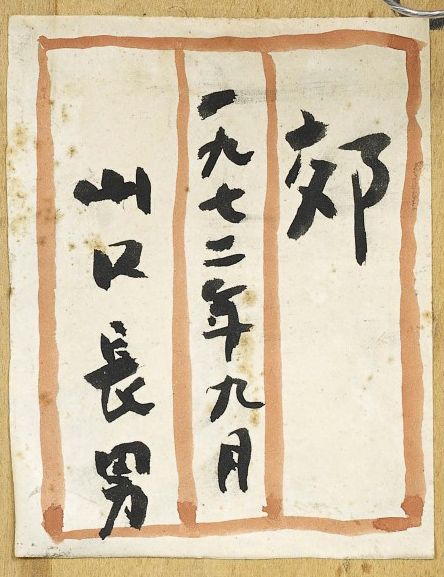 郊
一九七二年九月
山口長男